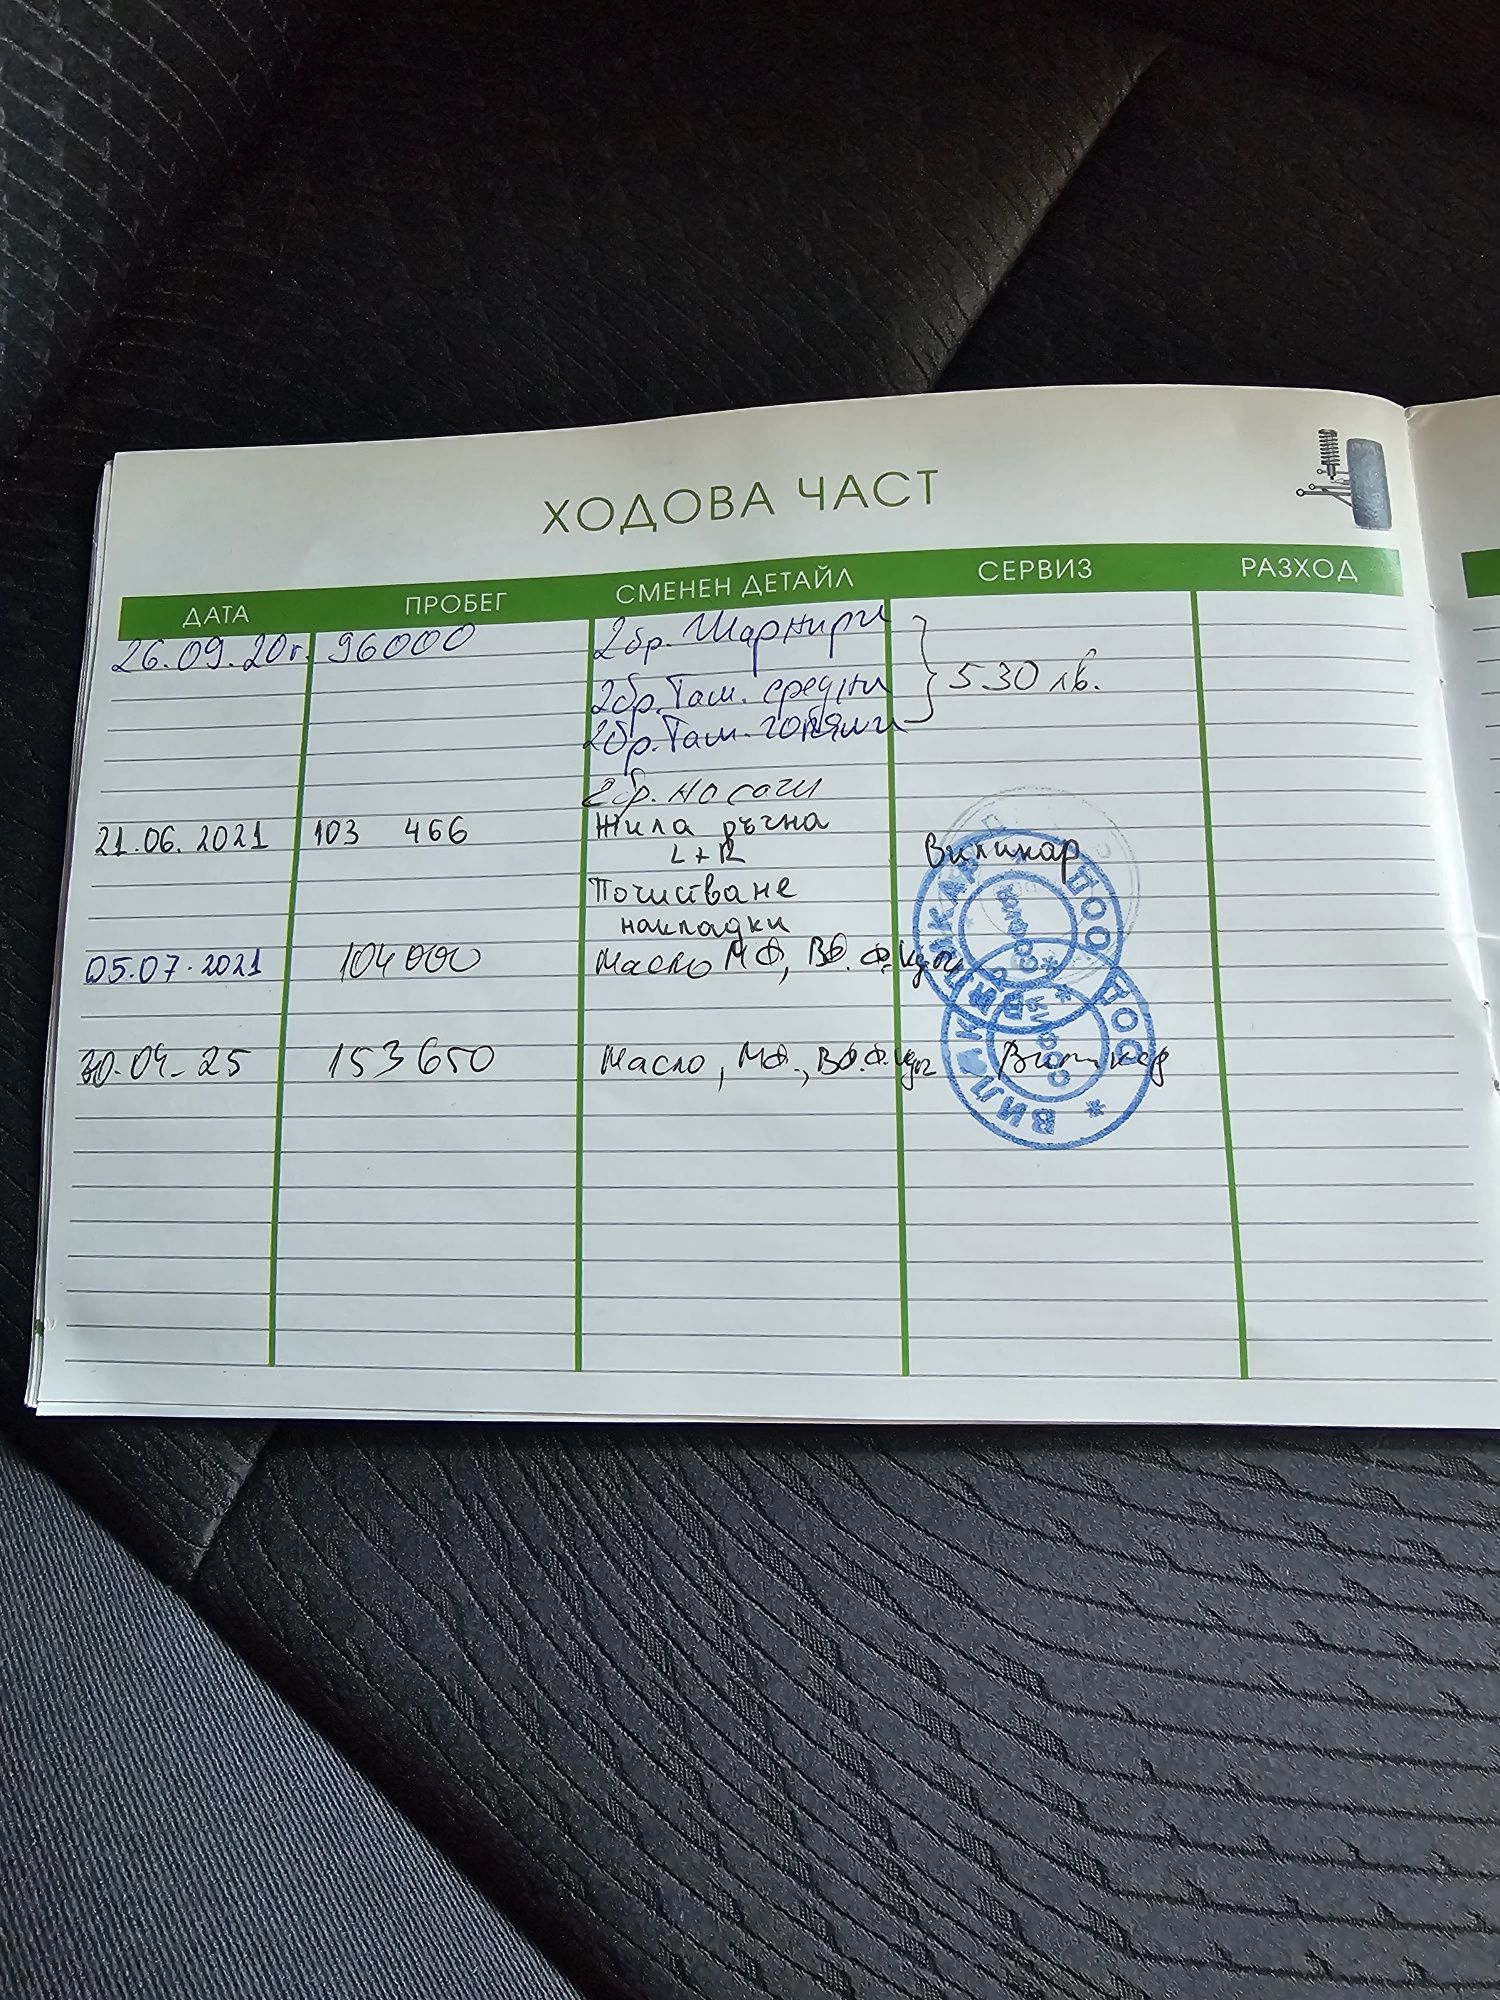 ХОДОВА ЧАСТ
ДАТА ПРОБЕГ СМЕНЕН ДЕТАЙЛ СЕРВИЗ РАЗХОД
26.09.20г. 96000 2бр. Шарнири
2бр. Там. средни 530 лв.
2бр. Там. големи
2бр. носачи
21.06.2021 103 466 Жила ръчна
L+R Виликар
Почистване
накладки
05.07.2021 104000 Масло МФ, ВФ. Ф.купе
30.04.25 153650 Масло, МФ., ВФ.Ф.купе Виликар
ВИЛИКАР ПООД СОФИЯ